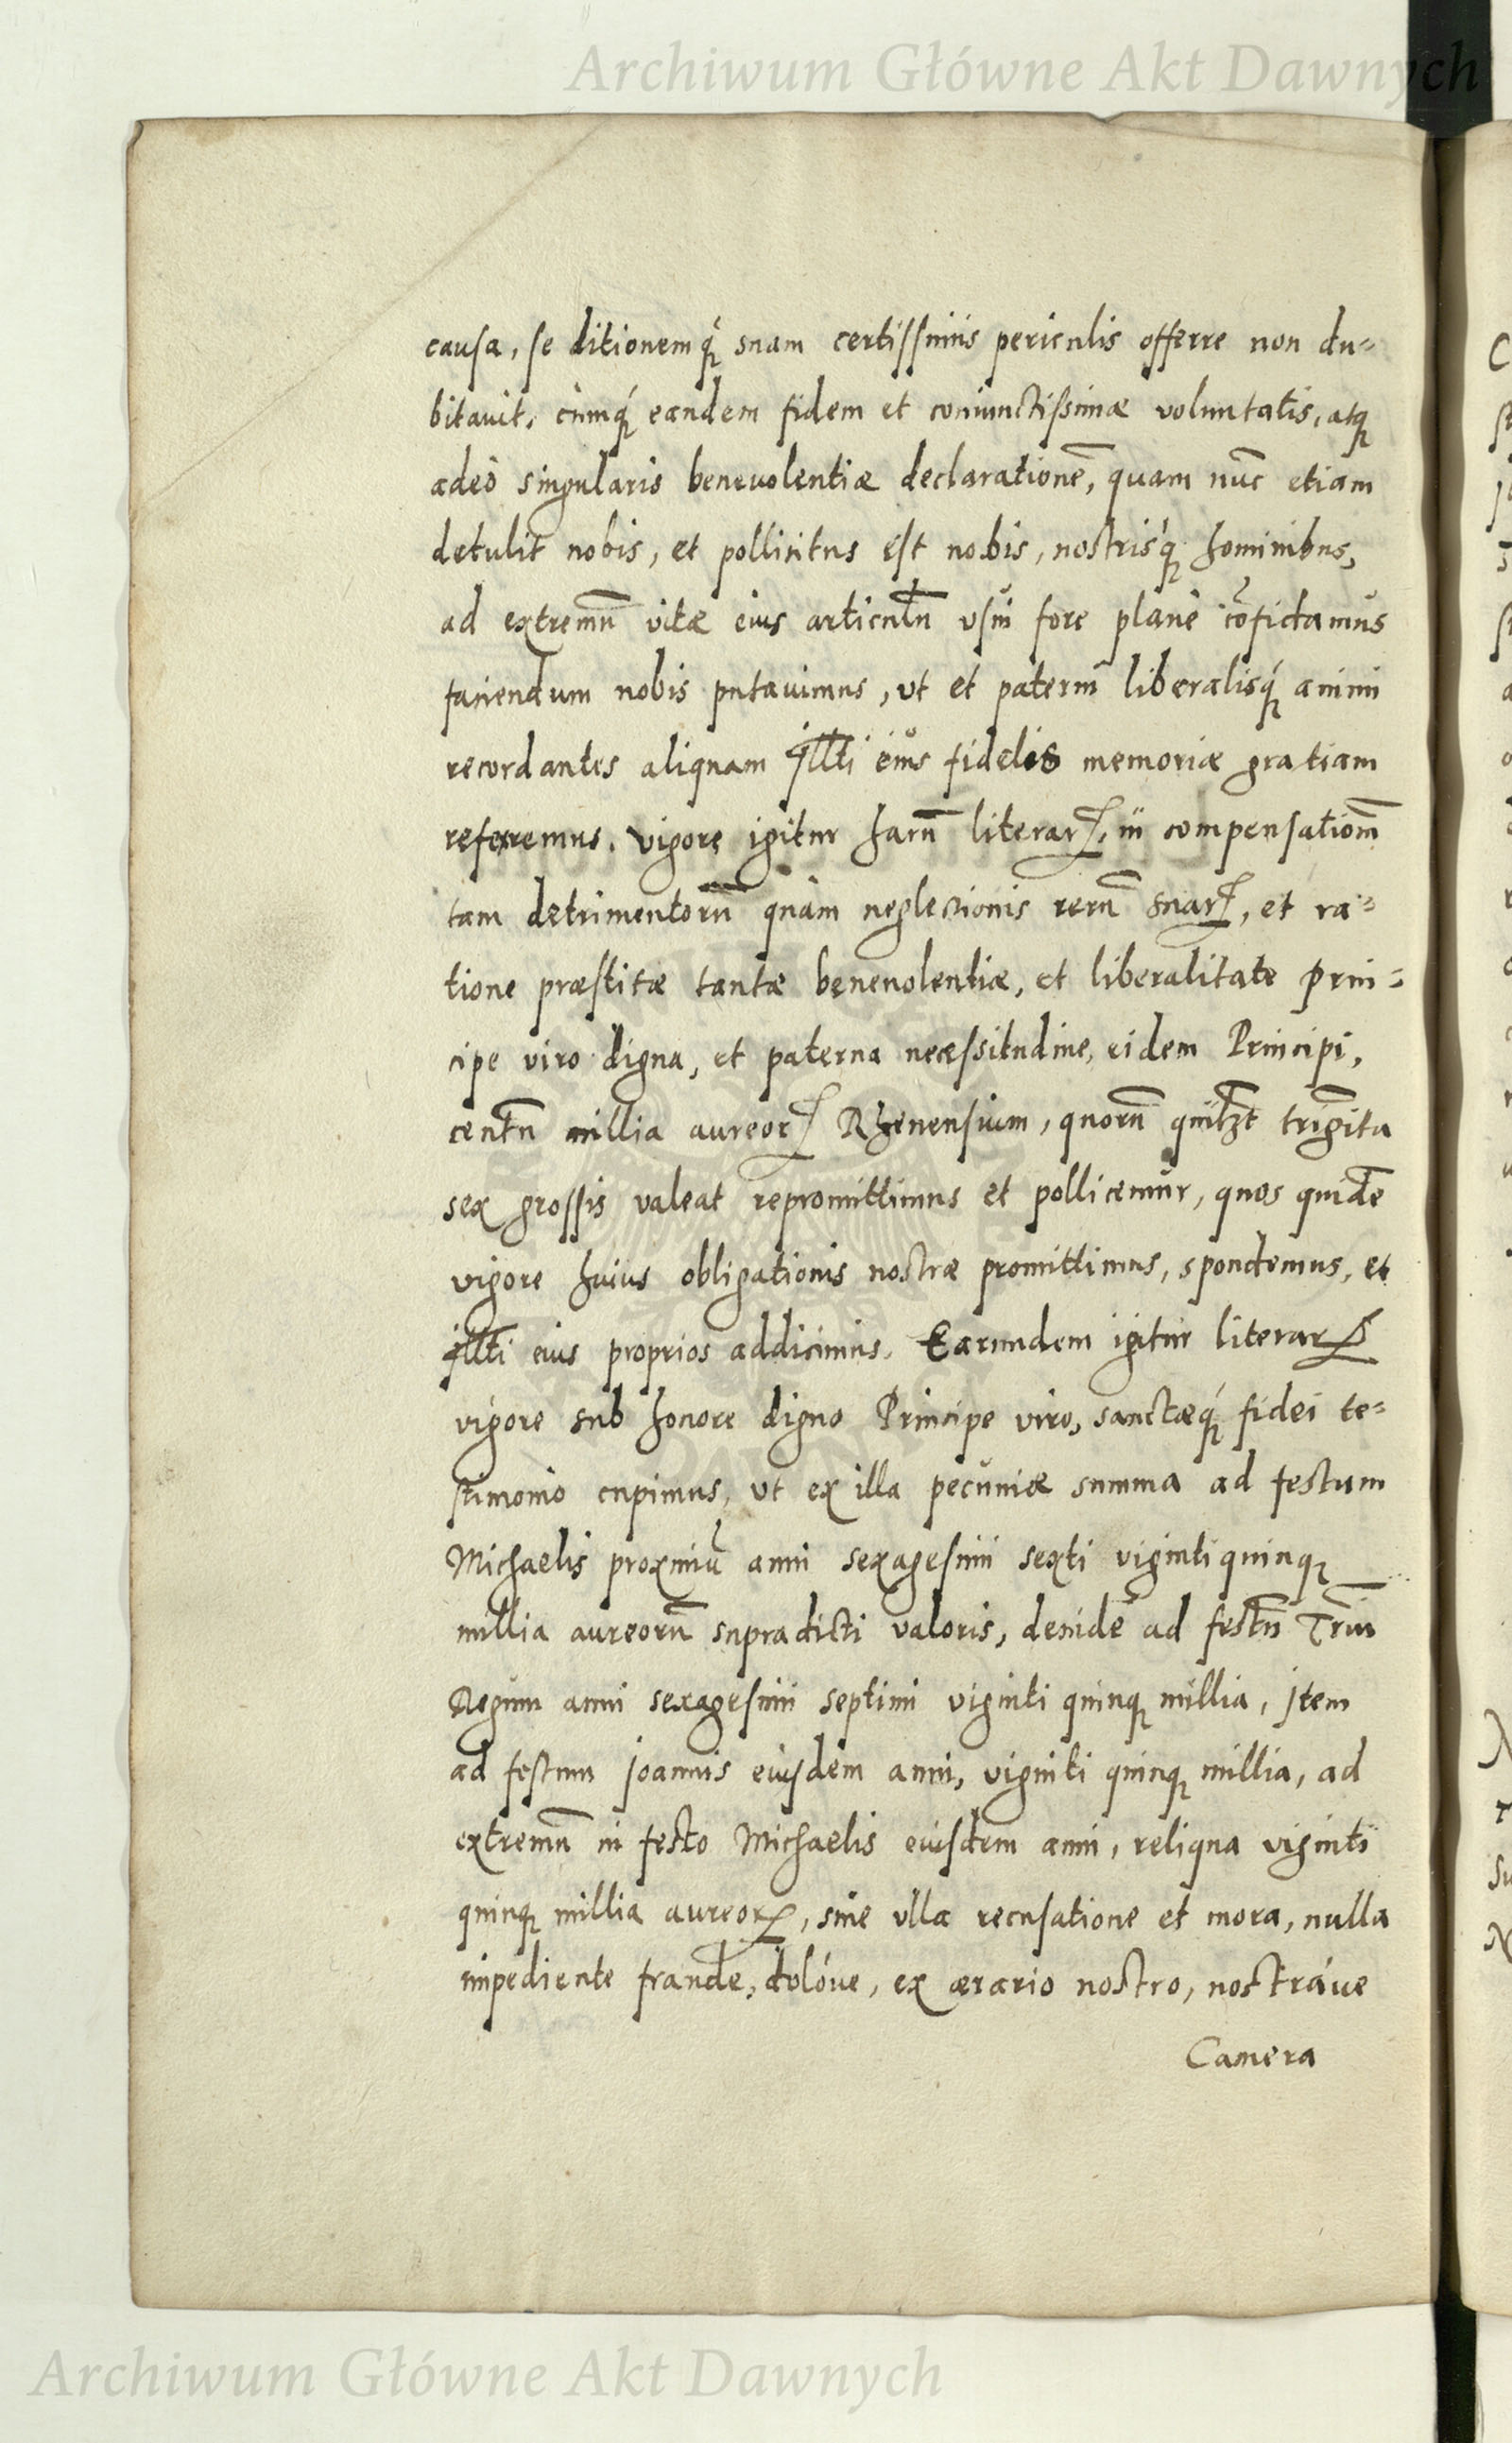 Archiwum Główne Akt Dawnych
causa, se ditionemq́ suam certissimis periculis offerre non du=
bitauit, cùmq́ eandem fidem et coniunctissimæ voluntatis, atq
adeò singularis beneuolentiæ declarationē, quam nūc etiam
detulit nobis, et pollicitus est nobis, nostrisq́ hominibus,
ad extremū vitæ eius articulū vsui fore planè cōfidamus
faciendum nobis putauimus, vt et paterni liberalisq́ animi
recordantes aliquam Jllti eius fidelis memoriæ gratiam
referremus. Vigore igitur harū literarꝝ, in compensationē
tam detrimentorū quàm neglectionis rerū suarꝝ, et ra=
tione præstitæ tantæ beneuolentiæ, et liberalitate Prin=
cipe viro digna, et paterna necessitudine, eidem Principi,
centū millia aureorꝝ Rhenensium, quorū quilꝫt trigīta
sex grossis valeat repromittimus et pollicemur, quos quidē
vigore huius obligationis nostræ promittimus, spondemus, et
Jllti eius proprios addicimus. Earundem igitur literarꝝ
vigore sub honore digno Principe viro, sanctæq́ fidei te=
stimonio cupimus, vt ex illa pecuniæ summa ad festum
Michaelis proximū anni sexagesimi sexti viginti quinq
millia aureorū supradicti valoris, deindē ad festū Triū
Regum anni sexagesimi septimi viginti quinq millia, jtem
ad festum Joannis eiusdem anni, viginti quinq millia, ad
extremū in festo Michaelis eiusdem anni, reliqua viginti
quinq millia aureorꝝ, sine vlla recusatione et mora, nulla
impediente fraude, dolóue, ex ærario nostro, nostráue
Camera
Archiwum Główne Akt Dawnych